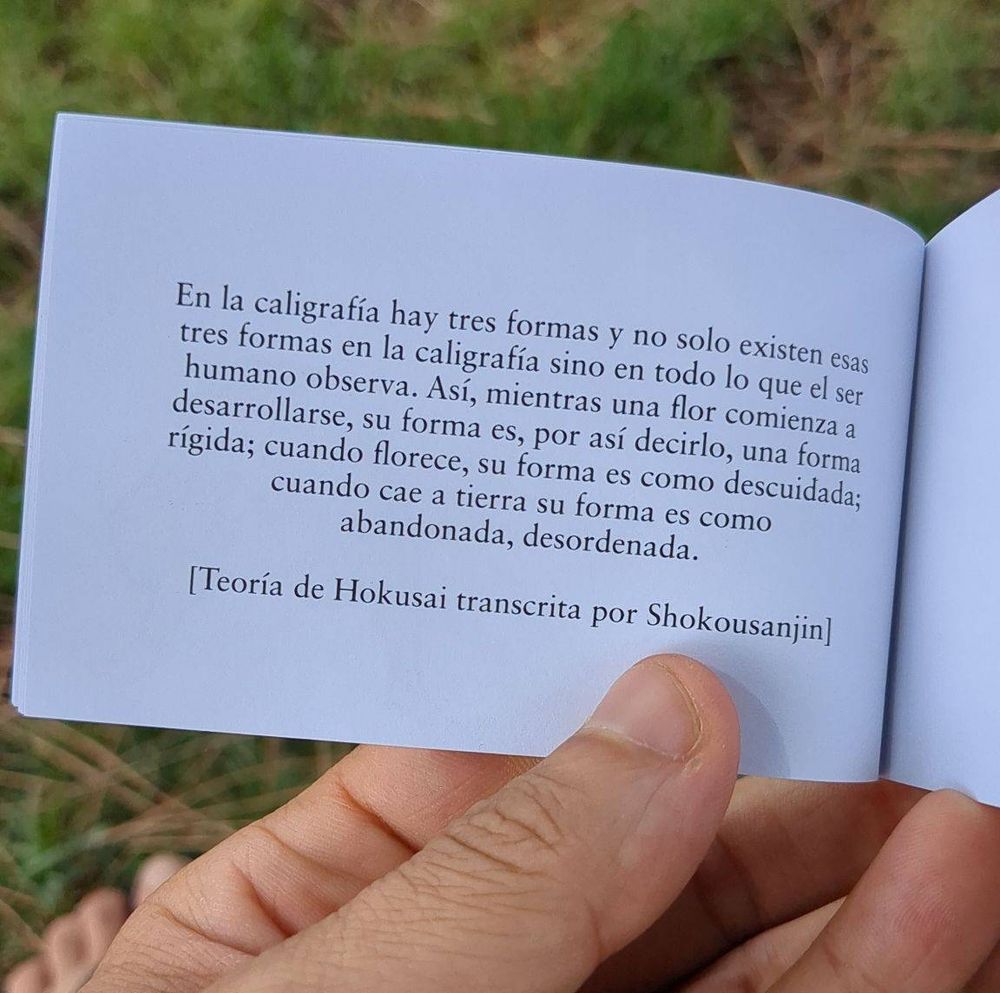 En la caligrafía hay tres formas y no solo existen esas
tres formas en la caligrafía sino en todo lo que el ser
humano observa. Así, mientras una flor comienza a
desarrollarse, su forma es, por así decirlo, una forma
rígida; cuando florece, su forma es como descuidada;
cuando cae a tierra su forma es como
abandonada, desordenada.
[Teoría de Hokusai transcrita por Shokousanjin]